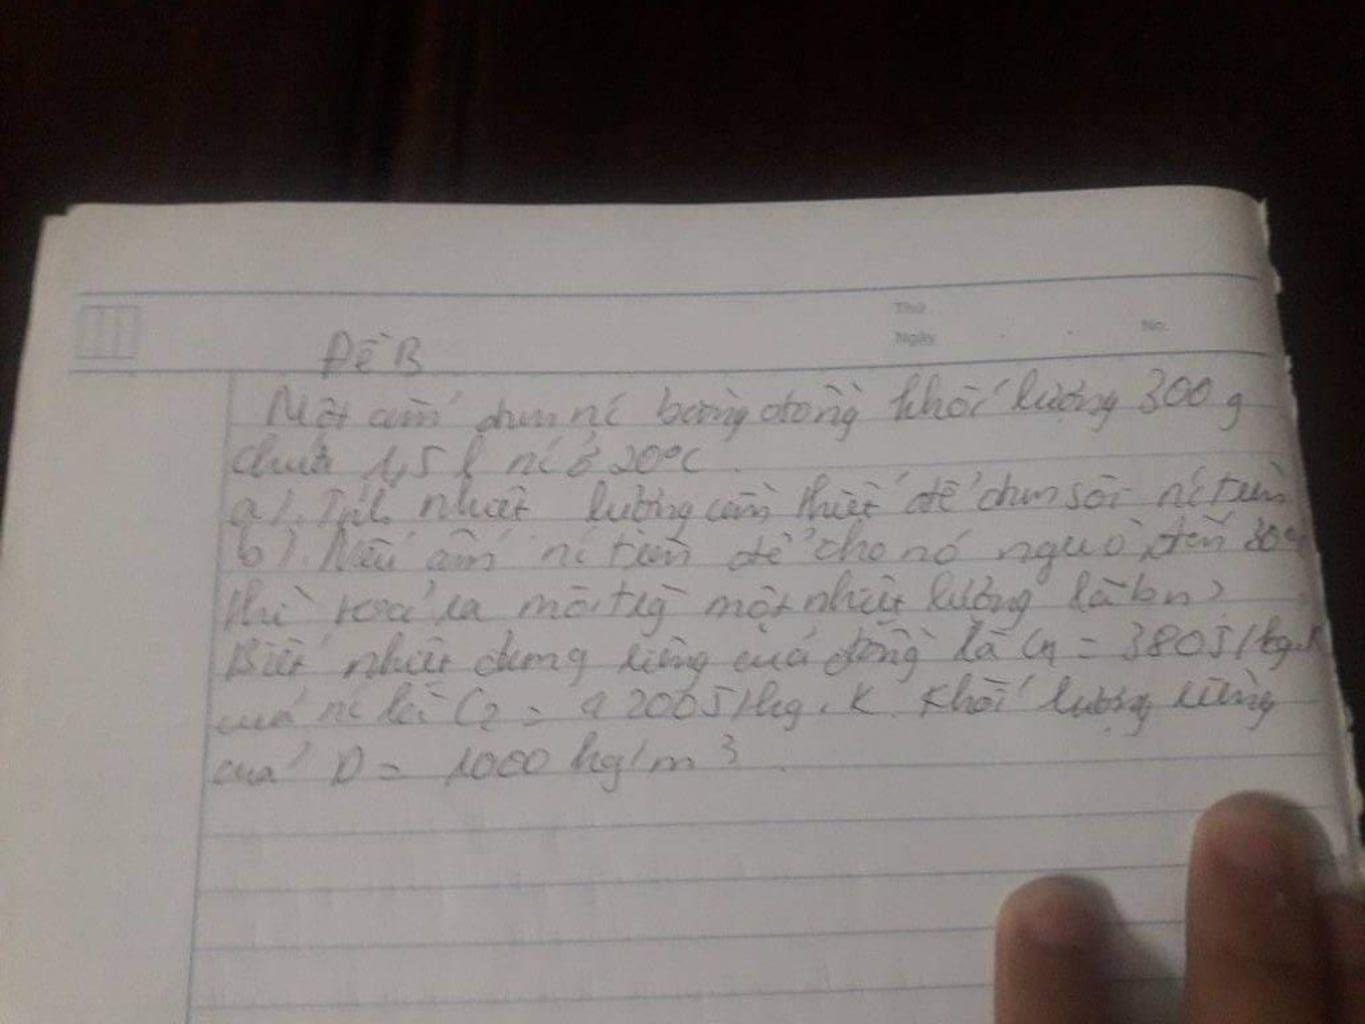 Thứ
Ngày
No.
Đề B
Một ấm đun nc bằng đồng khối lượng 300 g
chứa 1,5 l nc ở 20°C.
a). Tính nhiệt lượng cần thiết để đun sôi nc trên
b). Nếu ấm nc trên để cho nó nguội đến 30°C
thì toả ra môi tr̀g một nhiệt lượng là bn?
Biết nhiệt dung riêng của đồng là C1 = 380J/kg.K
của nc là C2 = 4200J/kg.K. Khối lượng riêng
của D = 1000 kg/m3.